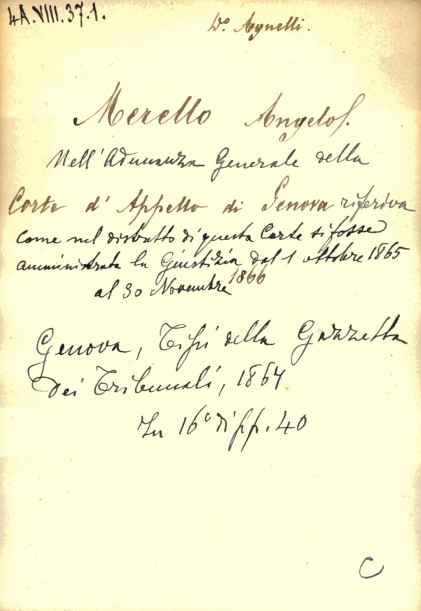 4A.VIII.37.1.
Dº Agnelli.
Merello Angelo f.
Nell'Adunanza Generale della
Corte d'Appello di Genova riferiva
come nel distretto di questa Corte si fosse
amministrata la Giustizia dal 1 ottobre 1865
al 30 Novembre 1866
Genova, Tipi della Gazzetta
dei Tribunali, 1867
In 16º di pp. 40
C